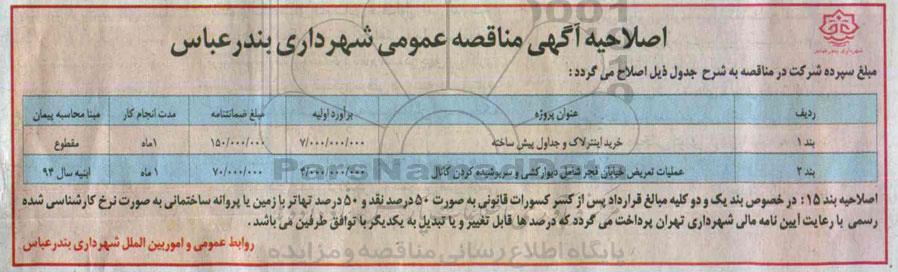 شهرداری بندرعباس
اصلاحیه آگهی مناقصه عمومی شهرداری بندرعباس
مبلغ سپرده شرکت در مناقصه به شرح جدول ذیل اصلاح می گردد :
ردیف عنوان پروژه برآورد اولیه مبلغ ضمانتنامه مدت انجام کار مبنا محاسبه پیمان
بند ۱ خرید اینترلاک و جداول پیش ساخته ۷/۰۰۰/۰۰۰/۰۰۰ ۱۵۰/۰۰۰/۰۰۰ ۱ماه مقطوع
بند ۲ عملیات تعریض خیابان فجر شامل دیوارکشی و سرپوشیده کردن کانال ۴/۰۰۰/۰۰۰/۰۰۰ ۷۰/۰۰۰/۰۰۰ ۱ ماه ابنیه سال ۹۴
اصلاحیه بند ۱۵ : در خصوص بند یک و دو کلیه مبالغ قرارداد پس از کسر کسورات قانونی به صورت ۵۰ درصد نقد و ۵۰ درصد تهاتر با زمین یا پروانه ساختمانی به صورت نرخ کارشناسی شده
رسمی با رعایت آیین نامه مالی شهرداری تهران پرداخت می گردد که درصد ها قابل تغییر و یا تبدیل به یکدیگر با توافق طرفین می باشد .
روابط عمومی و امور بین الملل شهرداری بندرعباس
ParsNamadData
پایگاه اطلاع رسانی مناقصه و مزایده